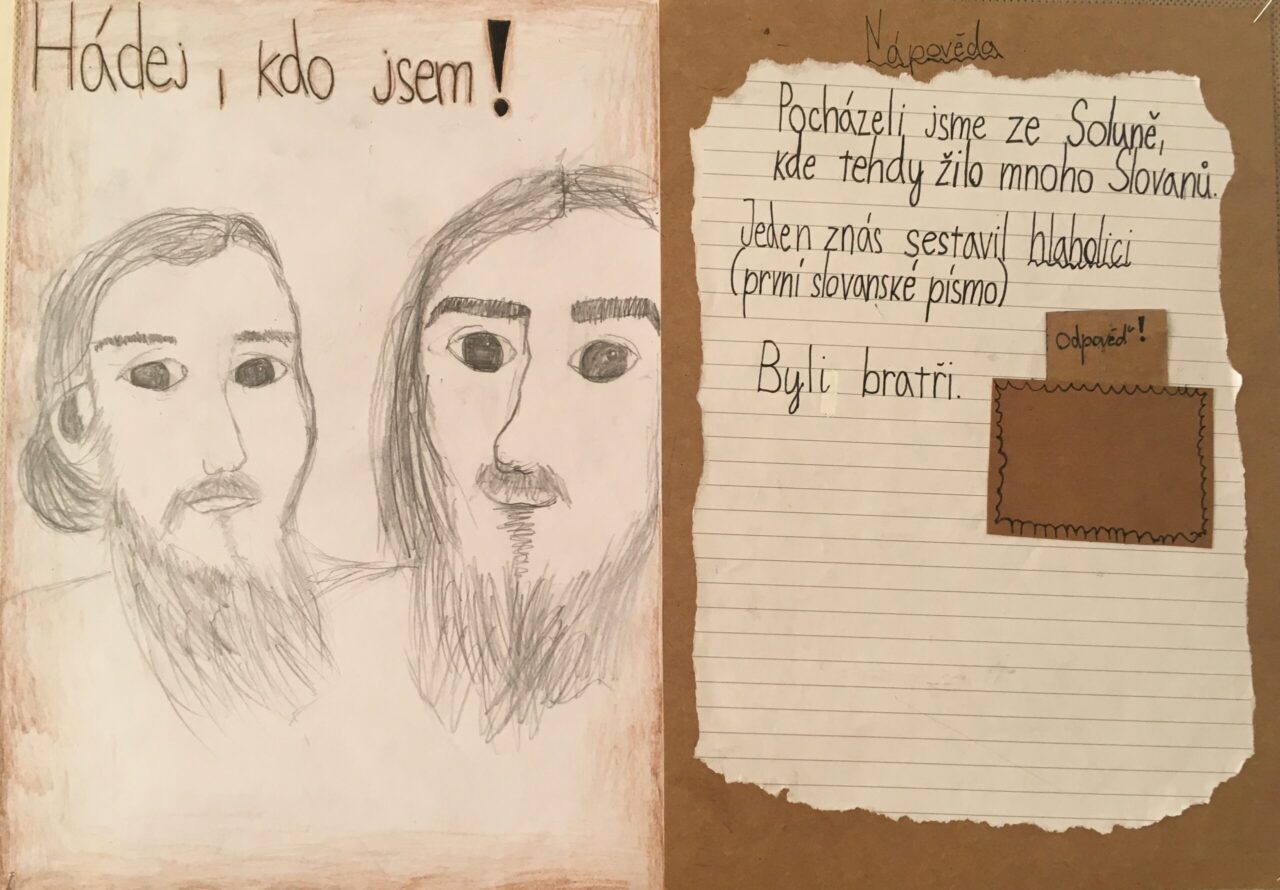 Hádej, kdo jsem!
Nápověda
Pocházeli jsme ze Soluně,
kde tehdy žilo mnoho Slovanů.
Jeden znás sestavil hlaholici
(první slovanské písmo)
Odpověď!
Byli bratři.